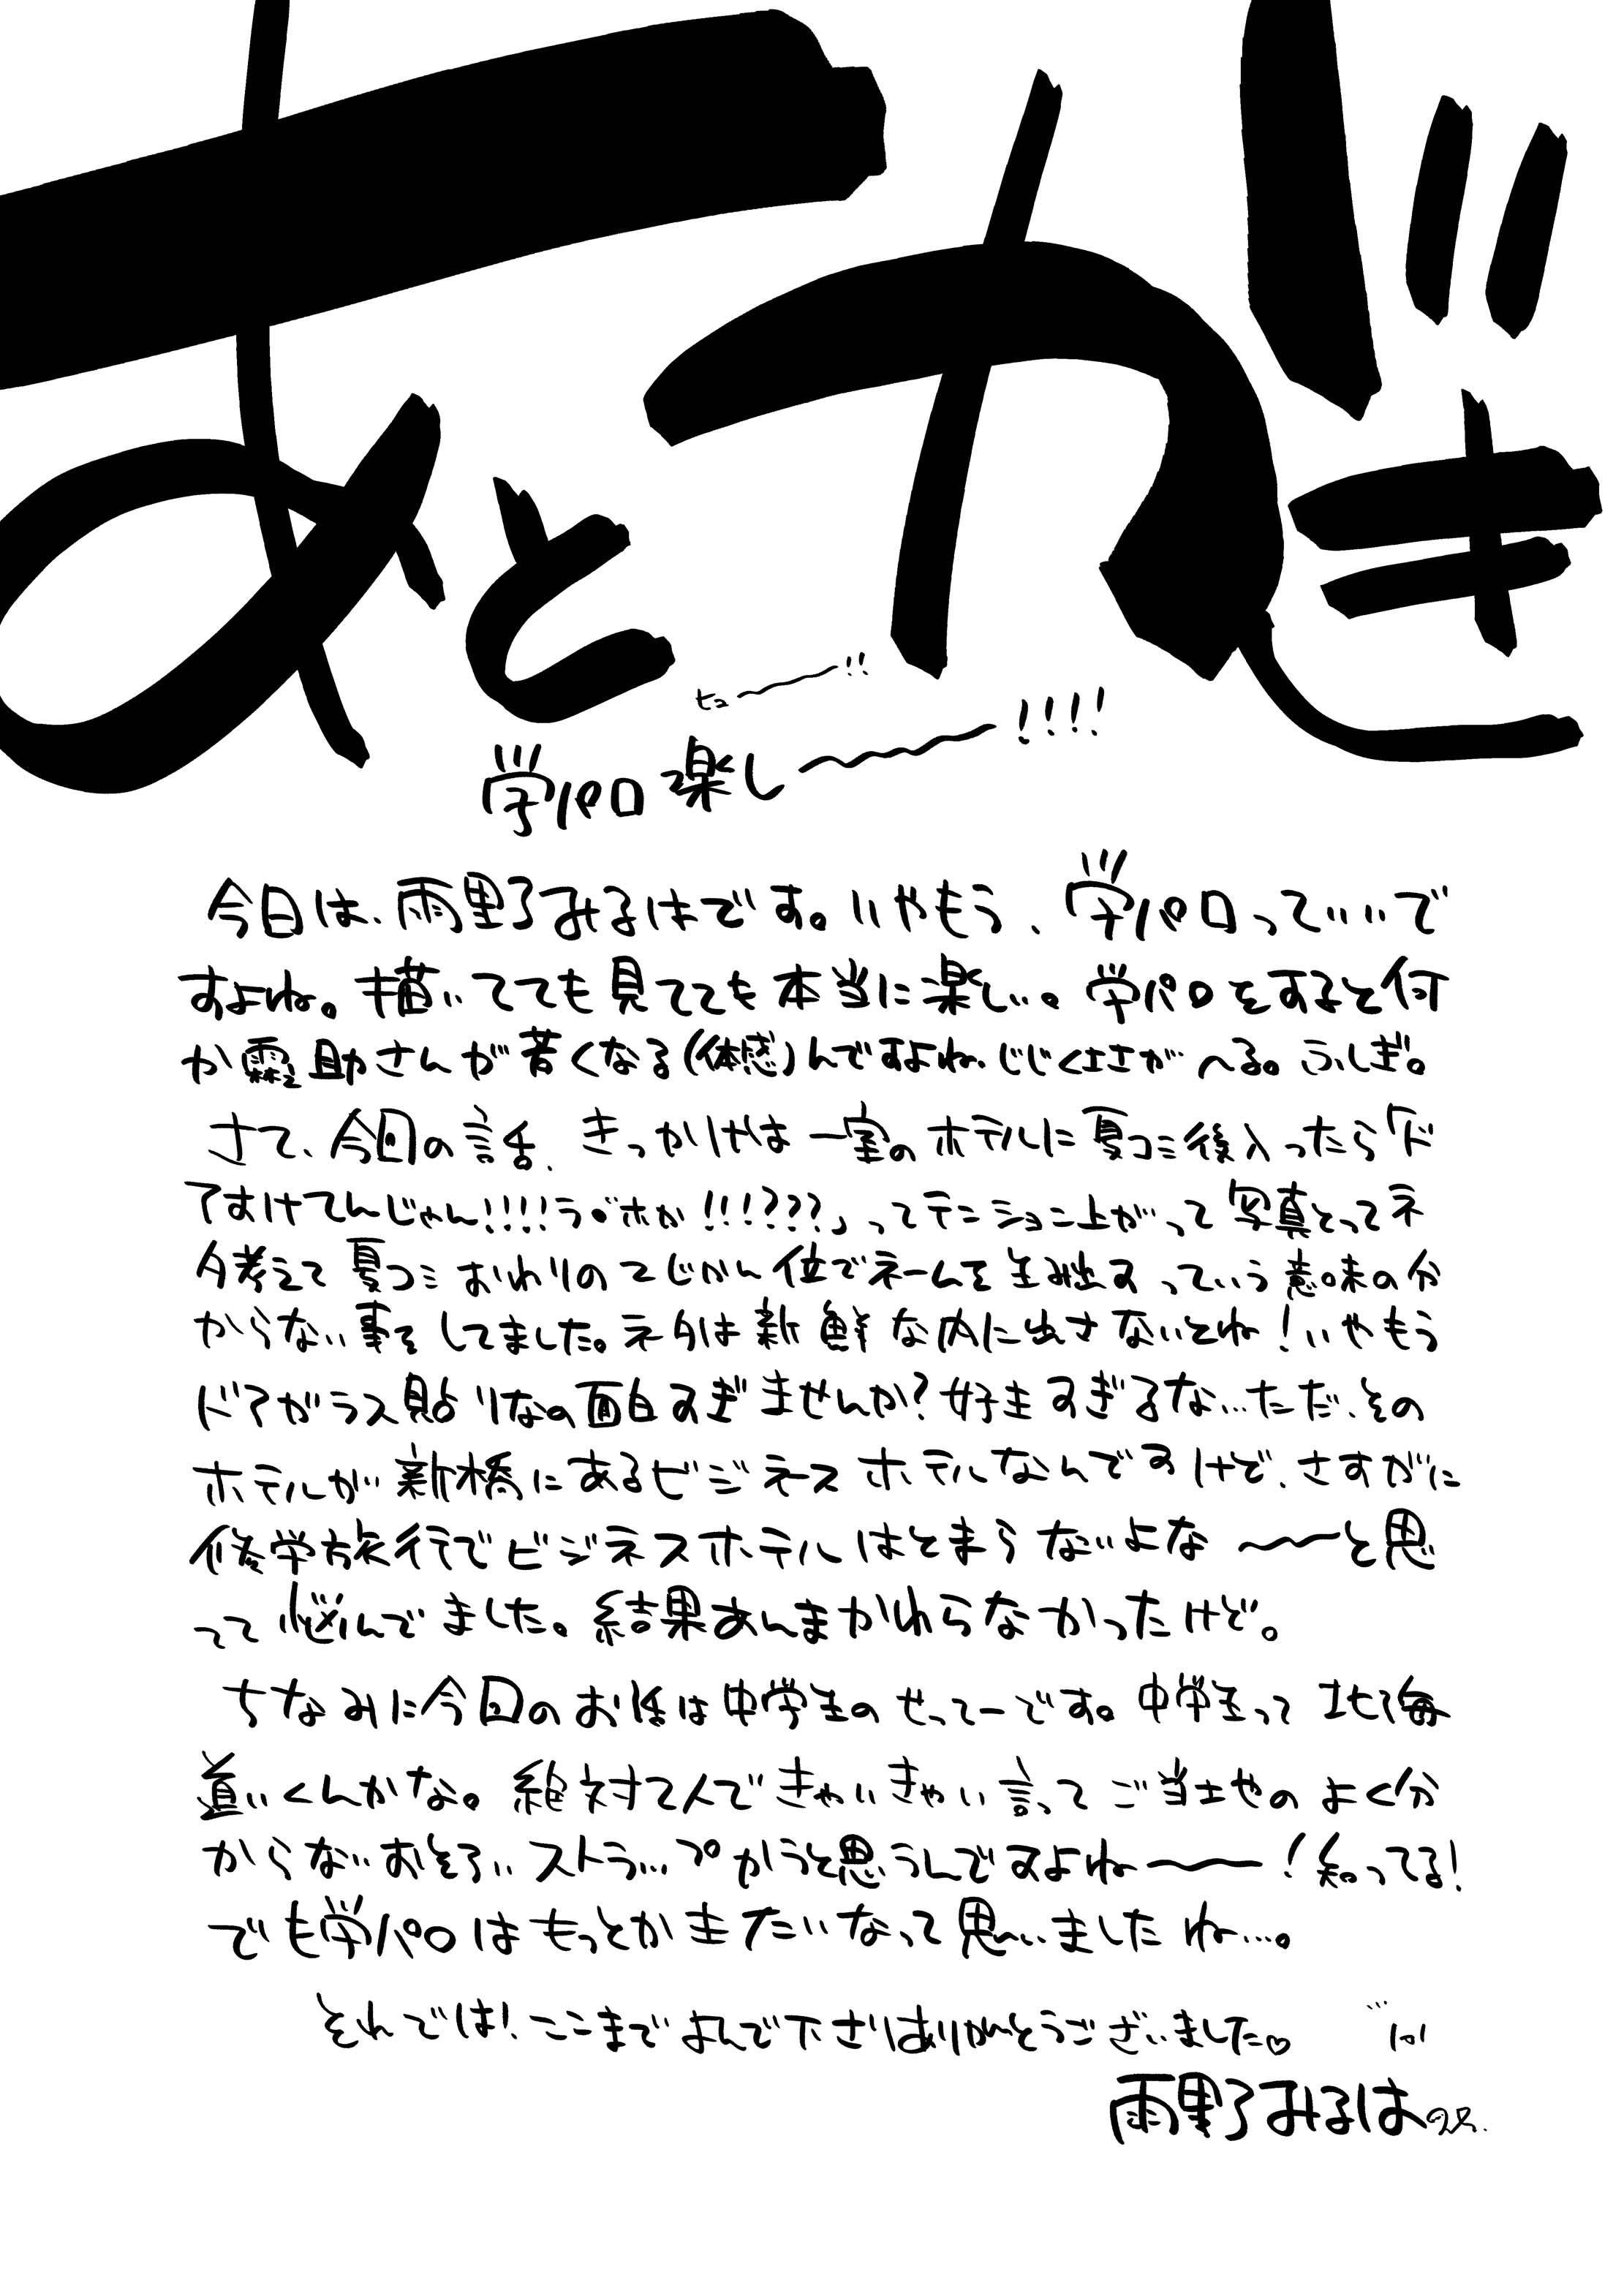 あとがき
ヒュ〜〜!!
学パロ楽し〜〜!!!!
今日は、雨野みるはです。いやもう、学パロっていいで
すよね。描いてても見てても本当に楽しい。学パロをすると何
か霖之助さんが若くなる(体感)んですよね、じじくささがへる。ふしぎ。
さて、今回の話、きっかけは一室のホテルに夏コミ後入ったら「ド
アすけてんじゃん!!!!ラブホか!!!???」ってテンション上がって写真とってネ
タ考えて夏コミおわりの2じかん位でネームを生み出すっていう意味の分
からない事をしてました。ネタは新鮮な内に出さないとね!いやもう
ドアガラス貼りなの面白すぎませんか?好きすぎるな…ただ、その
ホテルが新橋にあるビジネスホテルなんですけど、さすがに
修学旅行でビジネスホテルはとまらないよな〜〜と思
って悩んでました。結果あんまかわらなかったけど。
ちなみに今回のお話は中学生のせってーです。中学生って北海
道いくんかな。絶対2人できゃいきゃい言ってご当土やのよく分
からないおそろいストラップかうと思うんですよね〜〜!知ってる!
でも学パロはもっとかきたいなって思いましたね…。
それでは!ここまでよんで下さりありがとうございました♡
雨野みるは